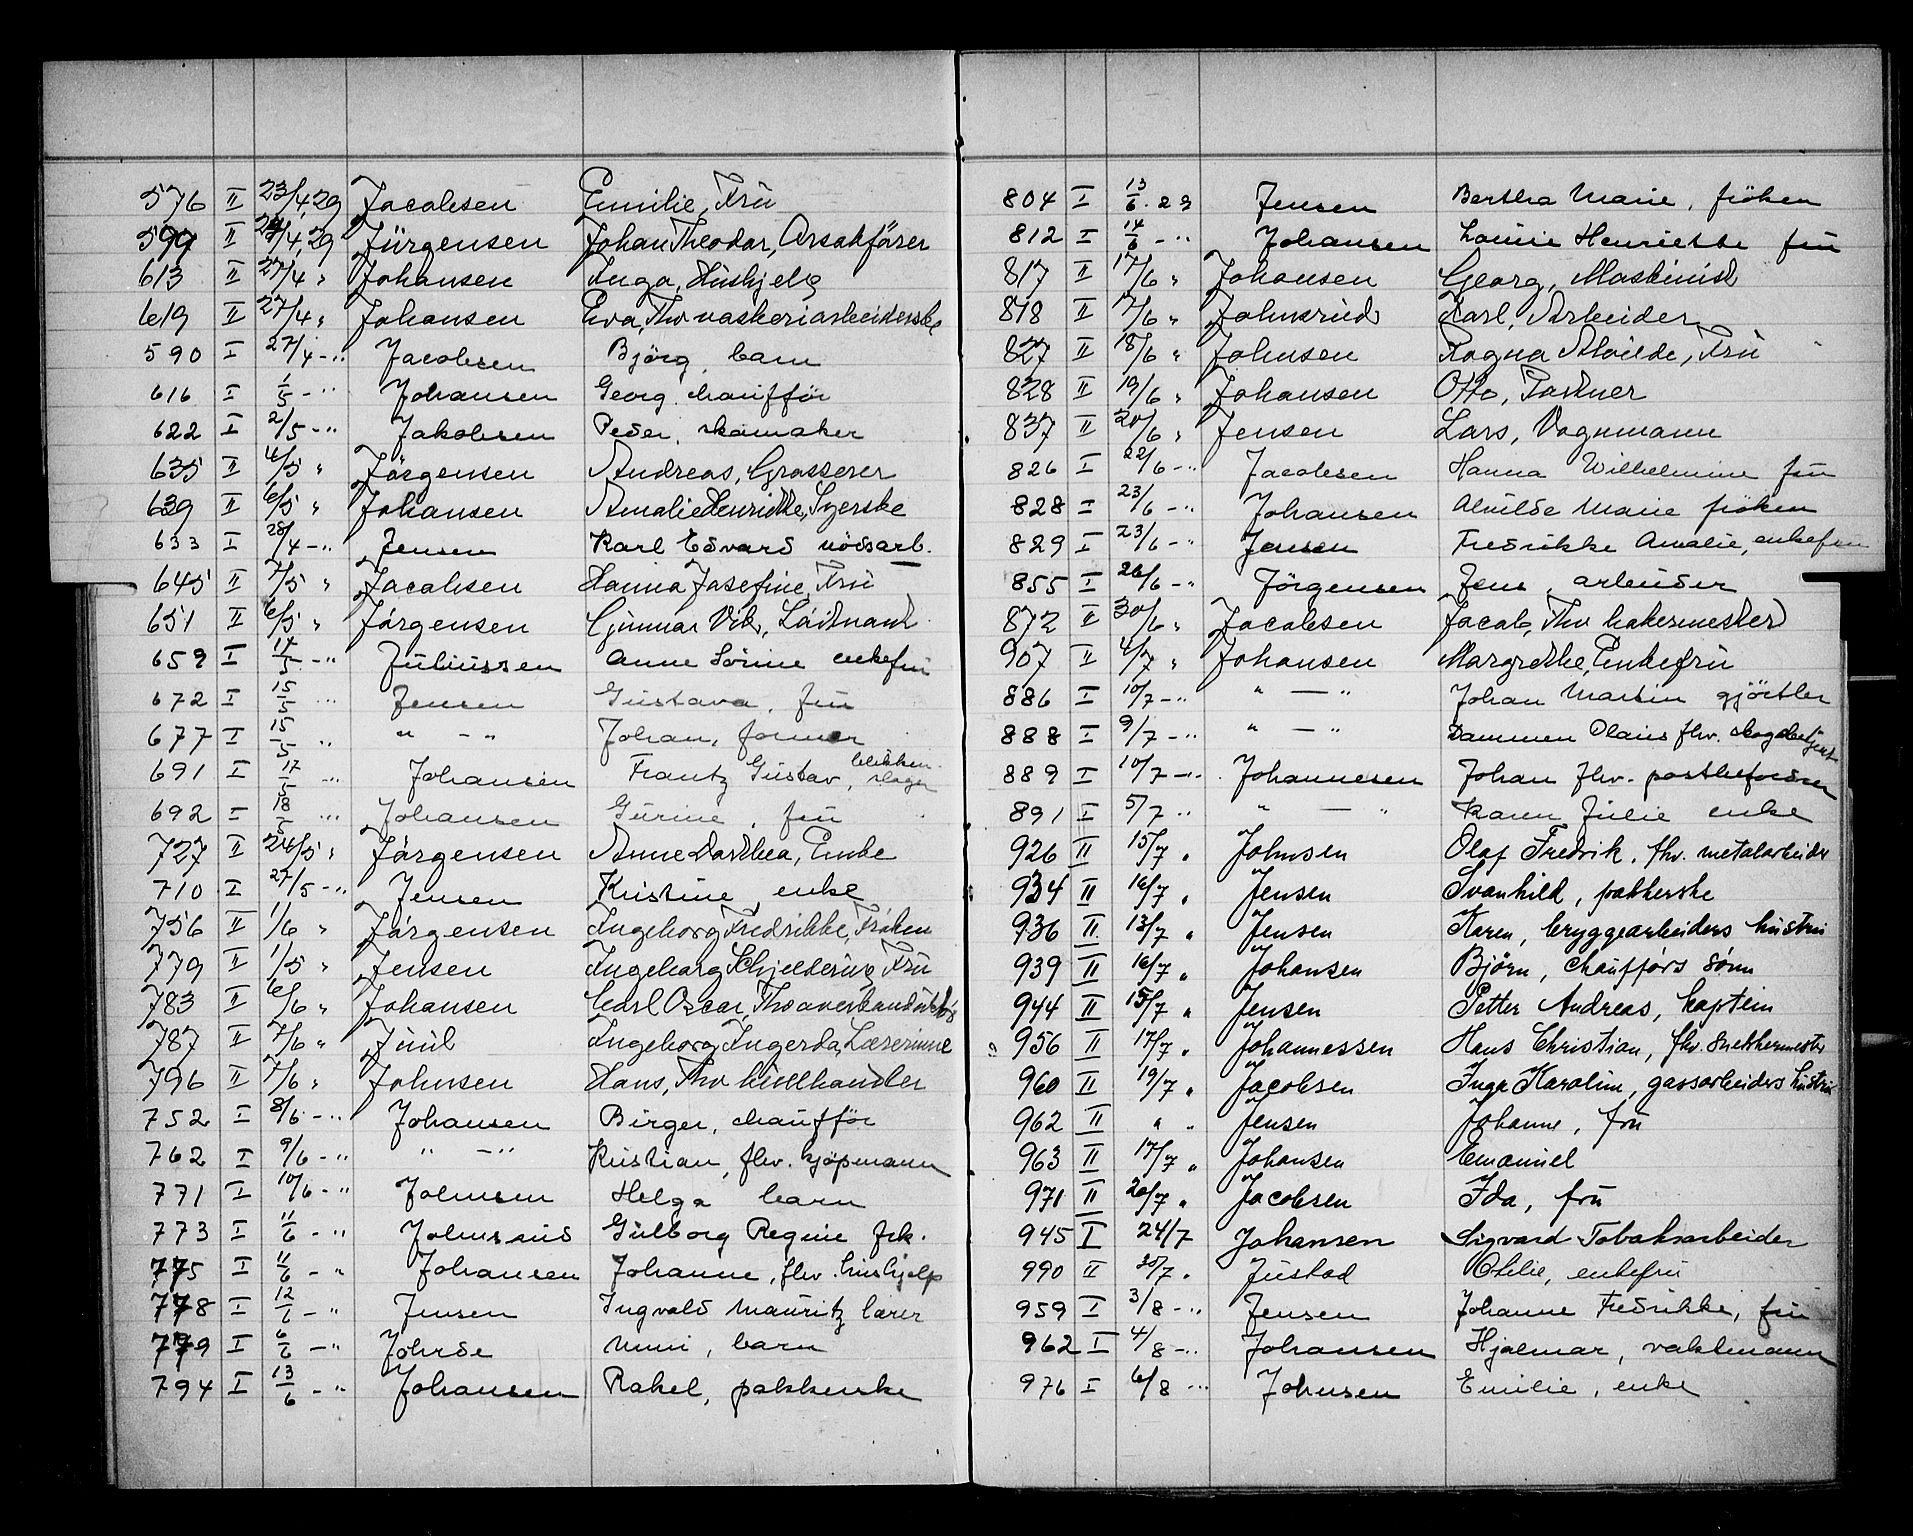 576 II 23/4 29 Jacobsen Emilie, Frü
599 II 24/4 29 Jürgensen Johan Theodor,
613 II 27/4 " Johansen Inga, Hüshjelp
619 II 27/4 " Johansen Eva, Fhv vaskeriarbeiderske
590 I 27/4 -" Jacobsen Bjørg, barn
616 I 1/5 -" Johansen Georg chauffør
622 I 2/5 -" Jakobsen Peder, skomaker
635 II 4/5 " Jørgensen Andreas, Grosserer
639 II 6/5 " Johansen Amalie Henrikke, Syerske
633 I 28/4 -" Jensen Karl Edvard nödsarb.
645 II 7/5 " Jacobsen Hanna Josefine, Frü
651 II 6/5 " Jørgensen Günnar Vik, Løitnant
659 I 14/5 -" Juliussen Anne Sørine enkefrü
672 I 15/5 -" Jensen Güstava, frü
677 I 15/5 " " - " Johan, former
691 I 17/5 -" Johansen Frantz Gustav, blikkenslager
692 I 18/5 -" Johansen Gurine, frü
727 II 24/5 " Jørgensen Anne Dorthea, Enke
710 I 27/5 -" Jensen Kristine, enke
756 II 1/6 " Jørgensen Ingeborg Fredrikke, Frøken
779 II 1/5 " Jensen Ingeborg Schjelderup, Frü
783 II 6/6 " Johansen Carl Oscar, Fhv overkonduktør
787 II 7/6 " Juul Ingeborg Ingerda, Lærerinne
796 II 7/6 " Johnsen Hans, Fhv
752 I 8/6 -" Johansen Birger, chauffør
762 I 9/6 -" " - " Kristian, fhv. kjøpmann
771 I 10/6 -" Johnsen Helga barn
773 I 11/6 -" Johnsrud Gülborg Regine frk.
775 I 11/6 -" Johansen Johanne, fhv. hüshjelp
778 I 12/6 -" Jensen Ingvald Mauritz lærer
779 I 6/6 -" Johrde Unni, barn
794 I 13/6 -" Johansen Rakel, pakkenke
804 I 13/6 29 Jensen Bertha Marie, frøken
812 I 14/6 -" Johansen Louise Henriette frü
817 II 17/6 " Johansen Georg, Maskinist
818 II 17/6 " Johnsrud Karl, Arbeider
827 II 18/6 " Johnsen Ragna Alvilde, Frü
828 II 19/6 " Johansen Otto, Partner
837 II 20/6 " Jensen Lars, Vognmann
826 I 22/6 -" Jacobsen Hanna Wilhelmine frü
828 I 23/6 -" Johansen Alvilde Marie frøken
829 I 23/6 -" Jensen Fredrikke Amalie, enkefrü
855 I 26/6 -" Jørgensen Jens arbeider
872 II 30/6 " Jacobsen Jacob, Fhv bakermester
907 II 4/7 " Johansen Margrethe, Enkefrü
886 I 10/7 -" " - " Johan Martin gjørtler
888 I 9/7 -" " - " Dammen Olaüs fhv. skogbetjent
889 I 10/7 -" Johannesen Johan fhv. postbefordrer
891 I 5/7 " " - " Karen Jülie enke
926 II 15/7 " Johnsen Olaf Fredrik, fhv. metalarbeider
934 II 16/7 " Jensen Svanhild, pakkerske
936 II 13/7 " Jensen Karen, bryggearbeiders hüstrü
939 II 16/7 " Johansen Bjørn, chaufførs sønn
944 II 15/7 " Jensen Petter Andreas, kaptein
956 II 17/7 " Johannessen Hans Christian, fhv. snekkermester
960 II 19/7 " Jacobsen Inga Karoline, gassarbeiders hüstrü
962 II " " Jensen Johanne, frü
963 II 17/7 " Johansen Emanüel
971 II 20/7 " Jacobsen Ida, frü
945 I 24/7 Johansen Sigvard Tobaksarbeider
990 II 30/7 " Justad Otelie, enkefrü
959 I 3/8 -" Jensen Johanne Fredrikke, frü
962 I 4/8 -" Johansen Hjalmar, vaktmann
976 I 6/8 -" Johnsen Emilie, enke